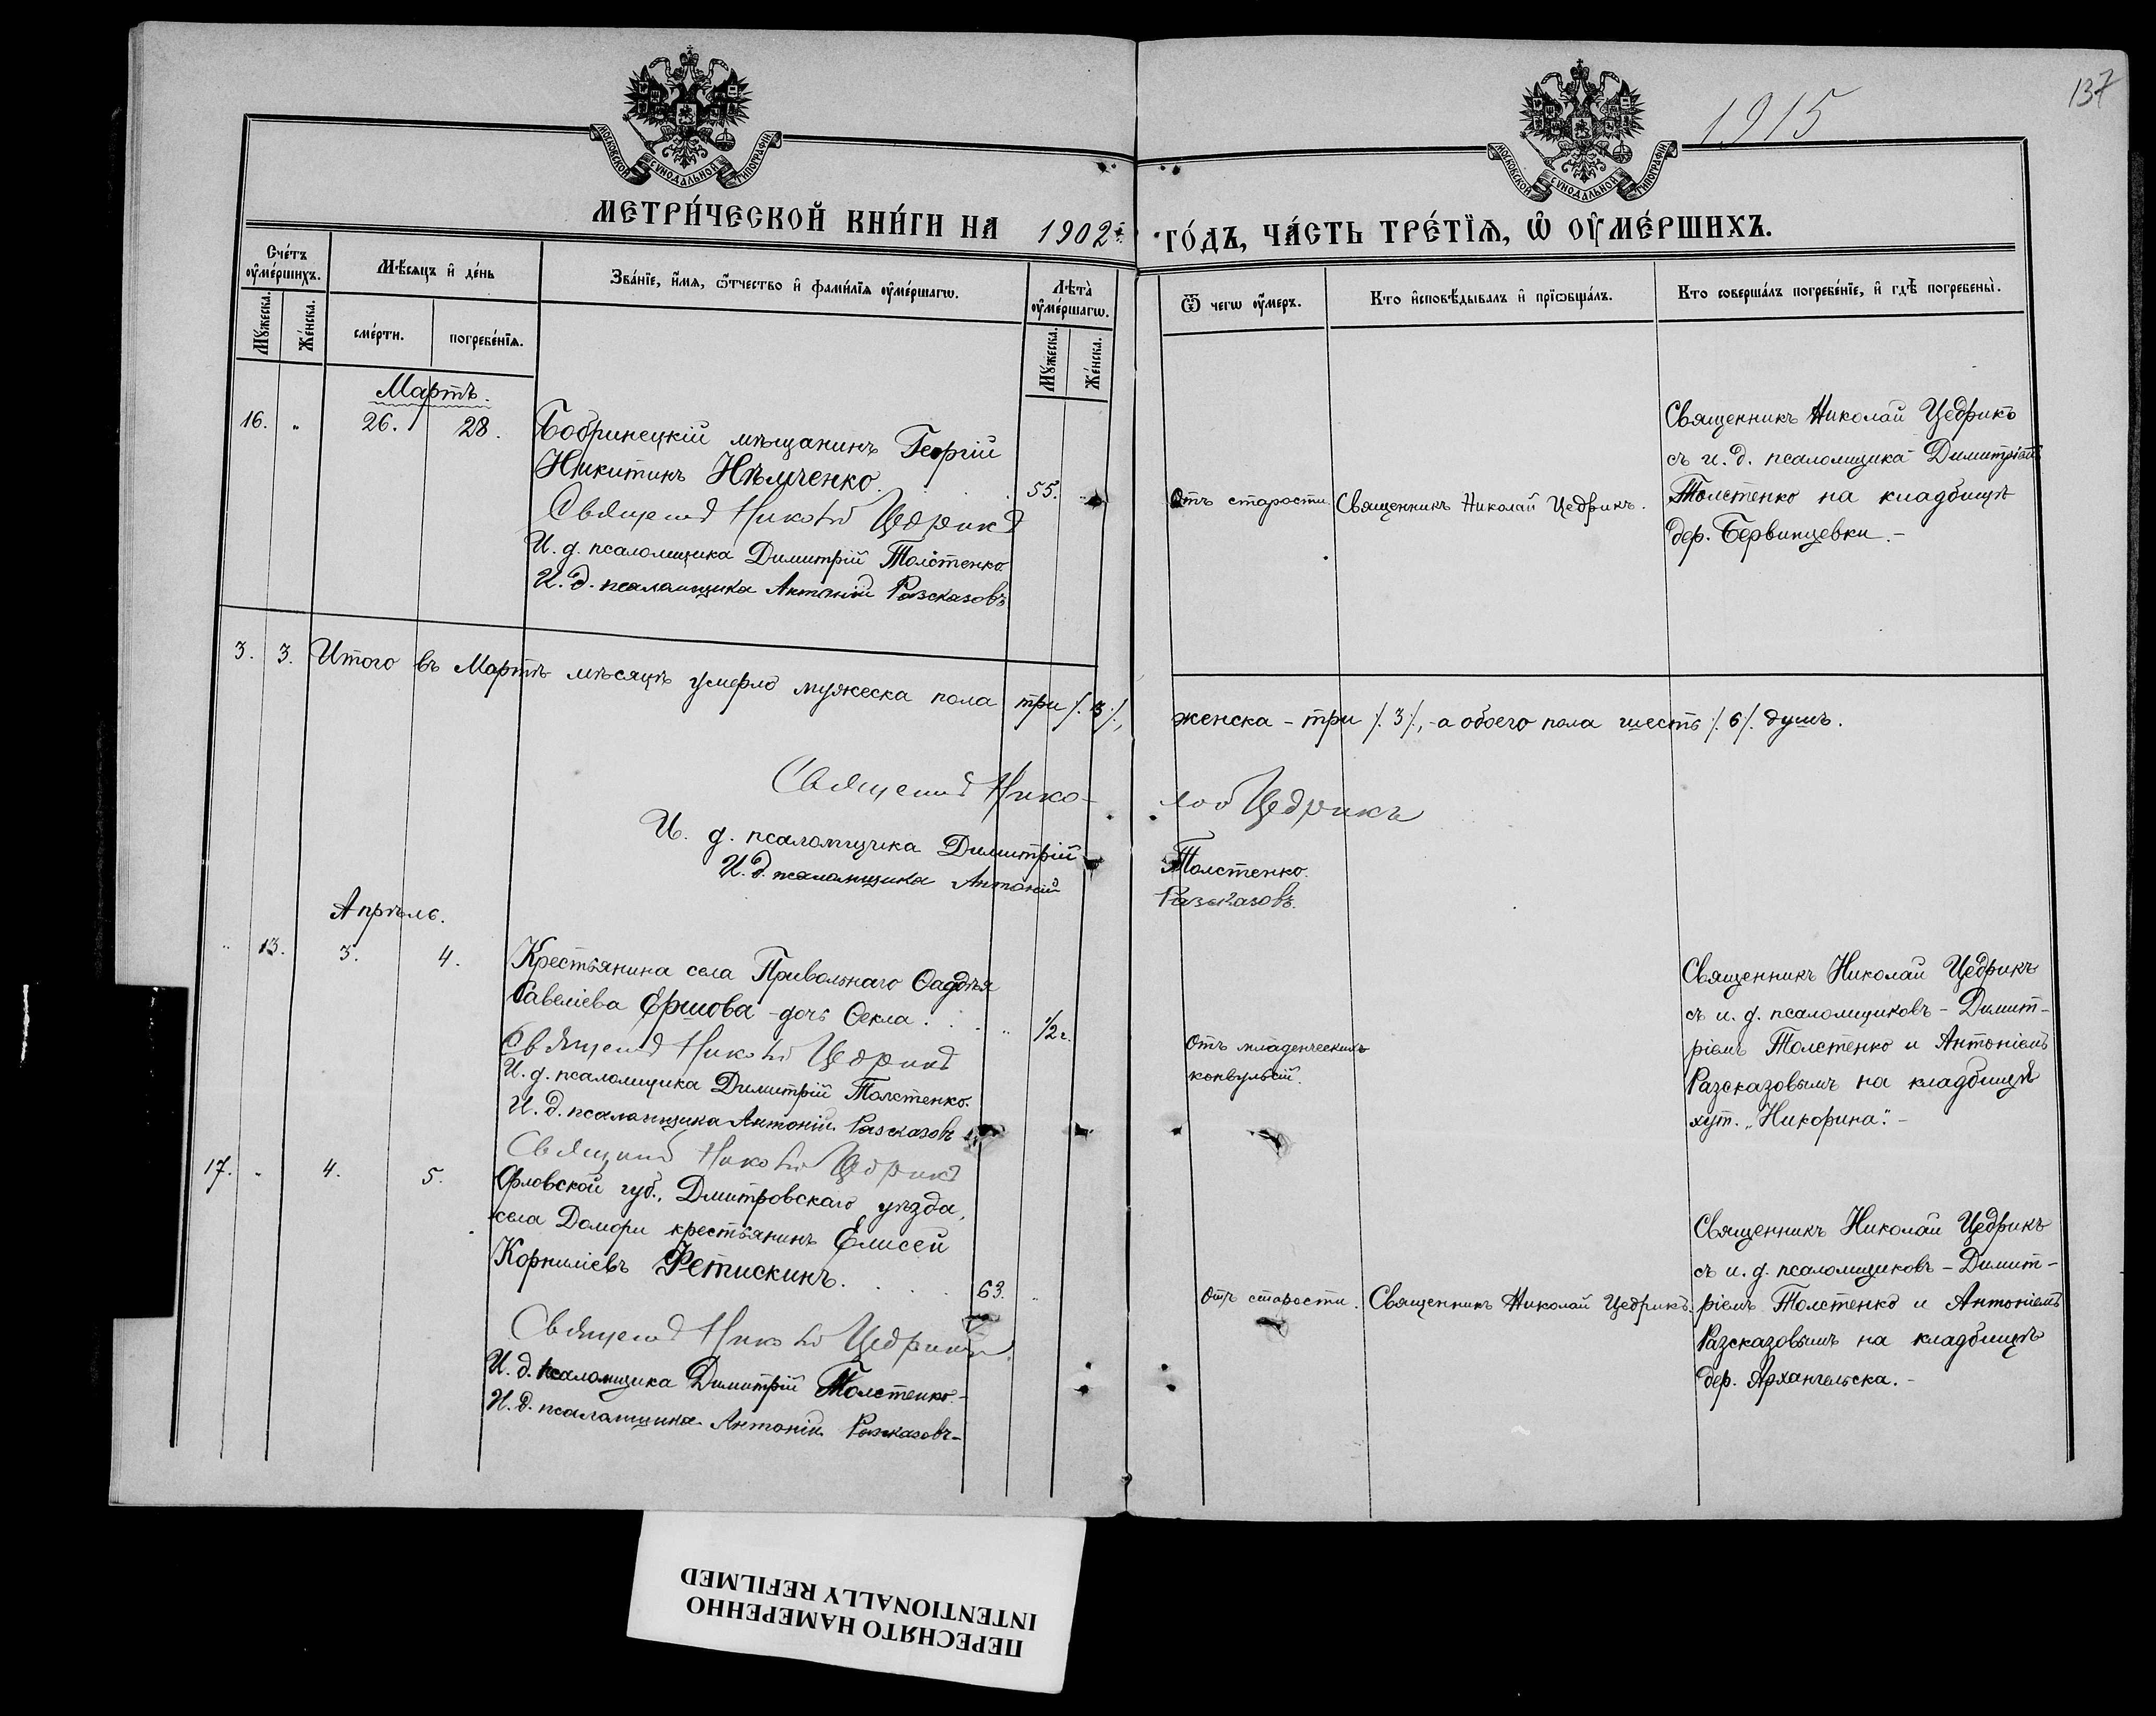 137
1915
МОСКОВСКОЙ СѴНОДАЛЬНОЙ ТИПОГРАФІИ
МОСКОВСКОЙ СѴНОДАЛЬНОЙ ТИПОГРАФІИ
МЕТРИ́ЧЕСКОЙ КНИ́ГИ НА 1902й ГО́ДЪ, ЧА́СТЬ ТРЕ́ТЇѦ, Ѡ҆ ОУ҆МЕ́РШИХЪ.
Сче́тъ оу҆ме́ршихъ.
Мꙋ́жеска.
Же́нска.
Мѣ́сяцъ и҆ де́нь
сме́рти.
погребе́нїѧ.
Зва́нїе, и҆́мѧ, ѻ҆́тчество и҆ фами́лїѧ оу҆ме́ршагѡ.
Лѣ́та оу҆ме́ршагѡ.
Мꙋ́жеска.
Же́нска.
Ѿ чегѡ оу҆́меръ.
Кто и҆сповѣ́дывалъ и҆ прїѻбща́лъ.
Кто соверша́лъ погребе́нїе, и҆ гдѣ̀ погребены̀.
Мартъ.
16. " 26. 28.
Бобринецкій мѣщанинъ Георгій
Никитинъ Нѣмченко. 55.
Священ Николай Цедрикъ
И. д. псаломщика Димитрій Толстенко
И. д. псаломщика Антоній Разсказовъ
Отъ старости.
Священникъ Николай Цедрикъ.
Священникъ Николай Цедрикъ
съ и. д. псаломщика Димитріемъ
Толстенко на кладбищѣ
дер. Бервинцевки.-
3. 3. Итого въ Мартѣ мѣсяцѣ умерло мужеска пола три /.3./, женска - три /.3/, - а обоего пола шесть /.6/. душъ.
Священ Николай Цедрикъ
И. д. псаломщика Димитрій Толстенко.
И. д. псаломщика Антоній Разсказовъ.
Апрѣль.
" 13. 3. 4.
Крестьянина села Привольнаго Ѳаддѣя
Савеліева Ершова - дочь Ѳекла. . . " 1/2 г.
Священ Николай Цедрикъ
И. д. псаломщика Димитрій Толстенко.
И. д. псаломщика Антоній Разсказовъ
Священ Николай Цедрикъ
Отъ младенческихъ
конвульсій.
Священникъ Николай Цедрикъ
съ и. д. псаломщиковъ - Димит-
ріемъ Толстенко и Антоніемъ
Разсказовымъ на кладбищѣ
хут. „Никорина".-
17. " 4. 5.
Орловской губ., Дмитровскаго уѣзда,
села Домори крестьянинъ Елисей
Корниліевъ Фетискинъ. . . . 63. "
Священ Николай Цедрикъ
И. д. псаломщика Димитрій Толстенко.-
И. д. псаломщика Антоній Разсказовъ-
Отъ старости.
Священникъ Николай Цедрикъ.
Священникъ Николай Цедрикъ
съ и. д. псаломщиковъ - Димит-
ріемъ Толстенко и Антоніемъ
Разсказовымъ на кладбищѣ
дер. Архангельска.-
ПЕРЕСНЯТО НАМЕРЕННО
INTENTIONALLY REFILMED